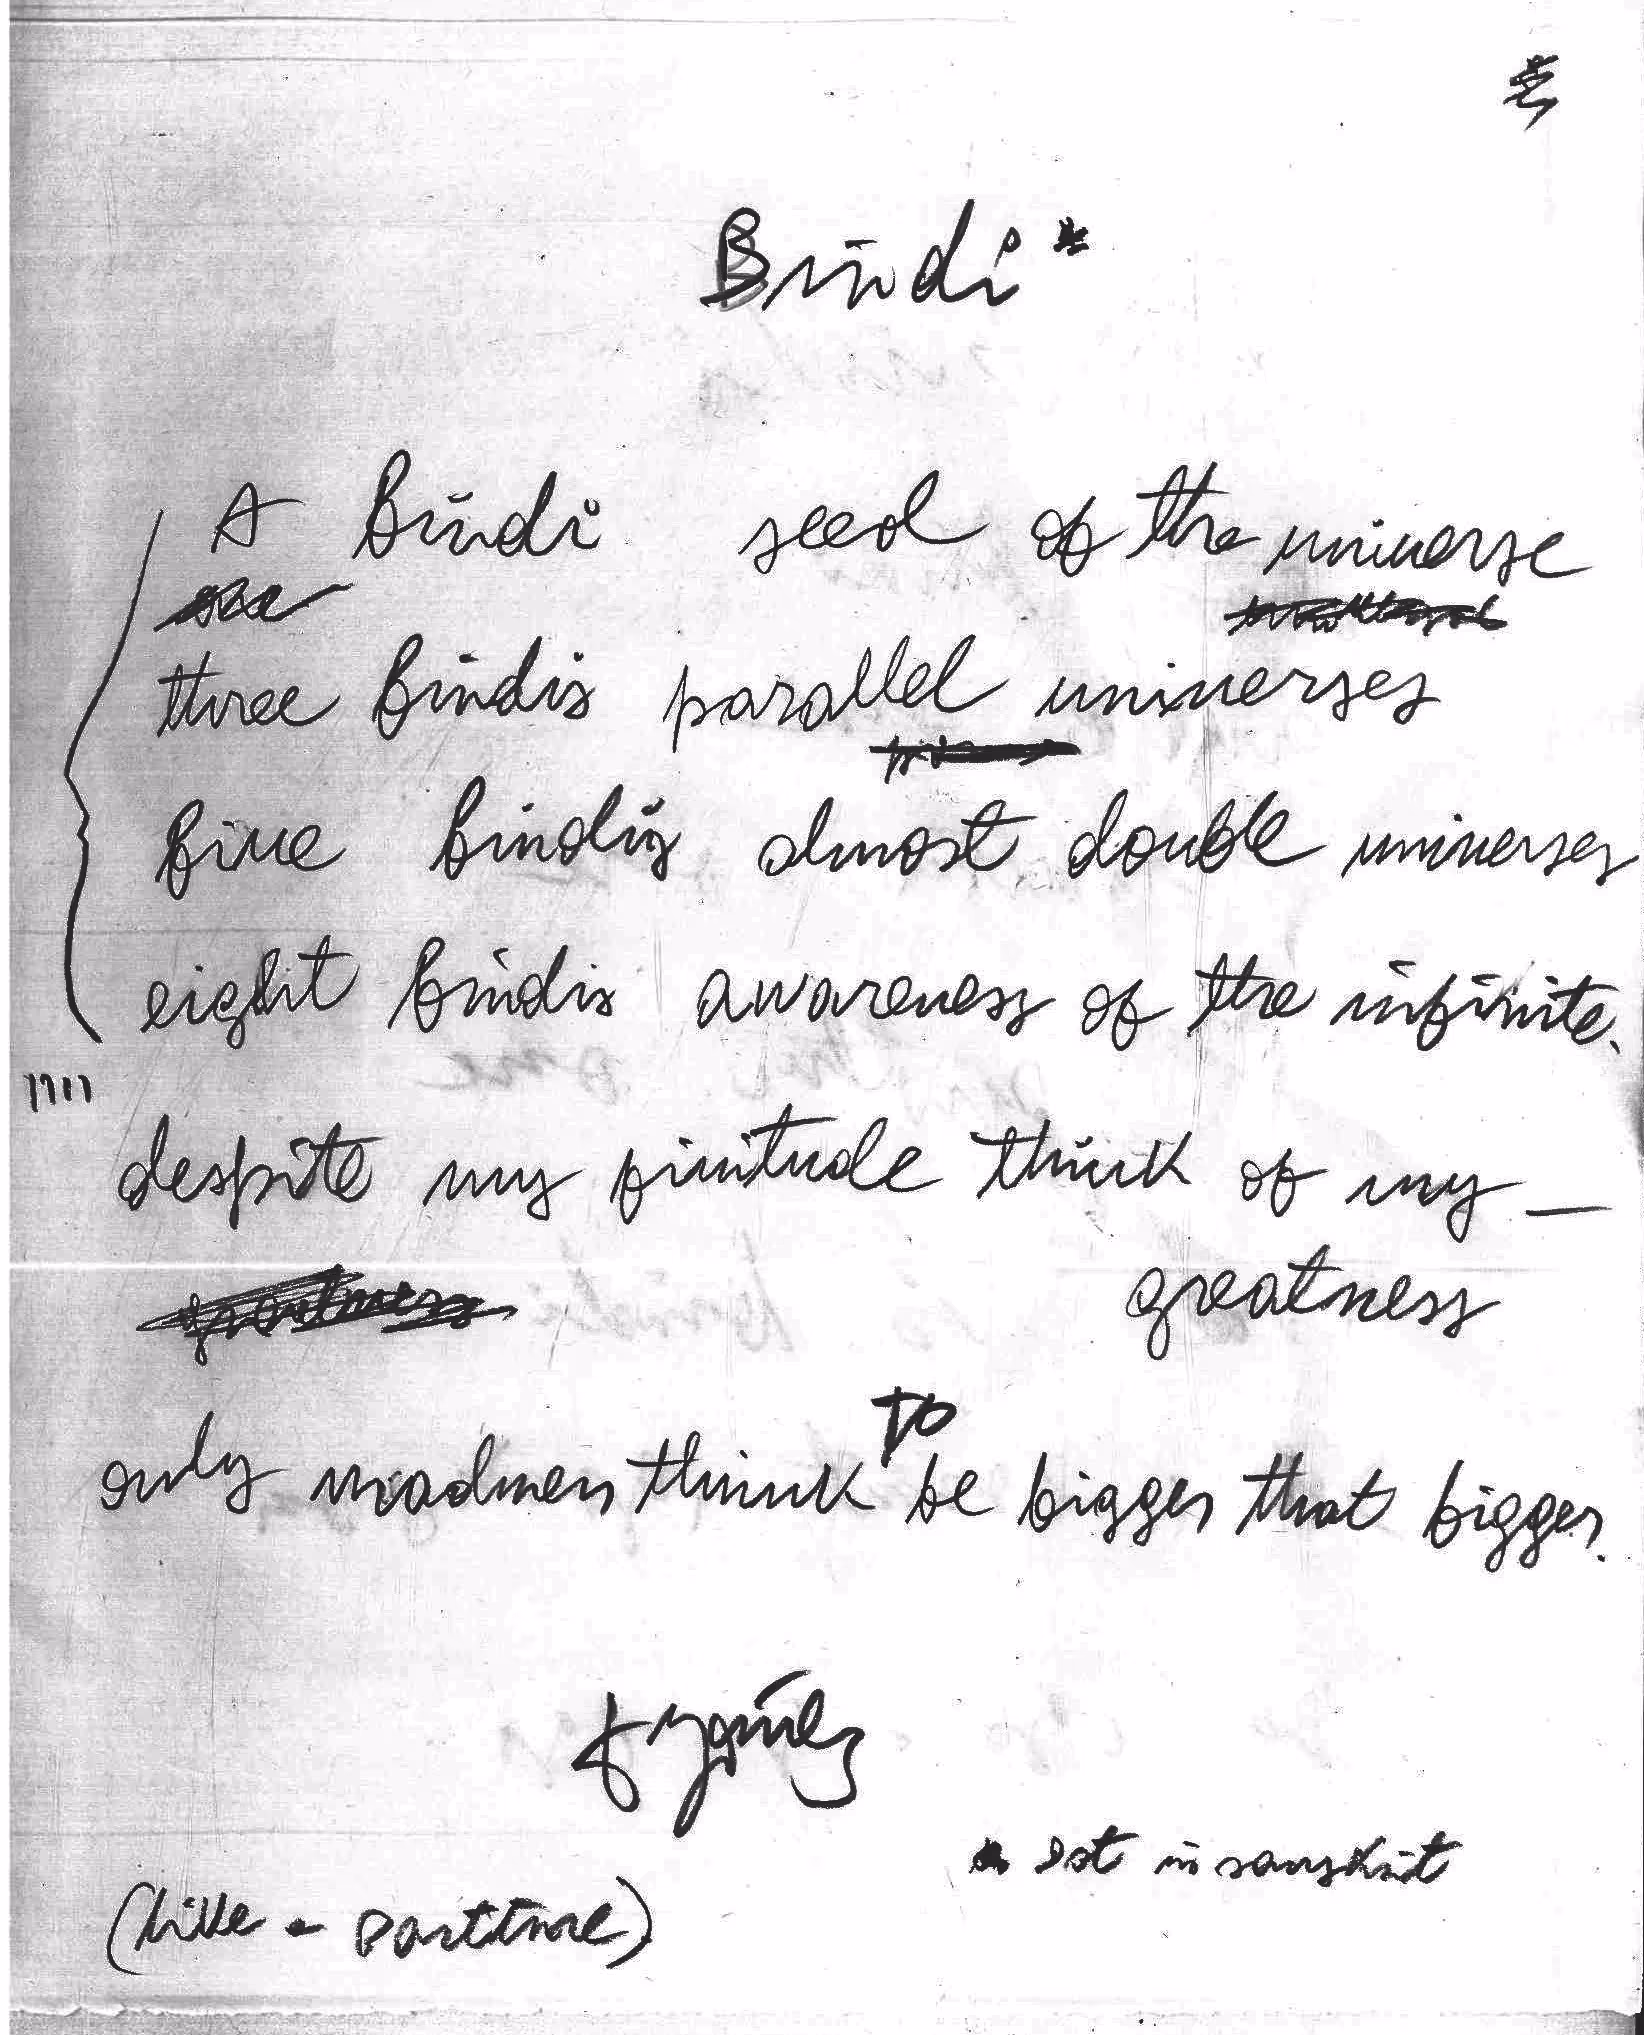 Bindi *
A Bindi seed of the universe
three Bindis parallel universes
five bindis almost double universes
eight bindis awareness of the infinite.
despite my finitude think of my _
greatness
only madmen think to be bigger that bigger.
* in sanskrit